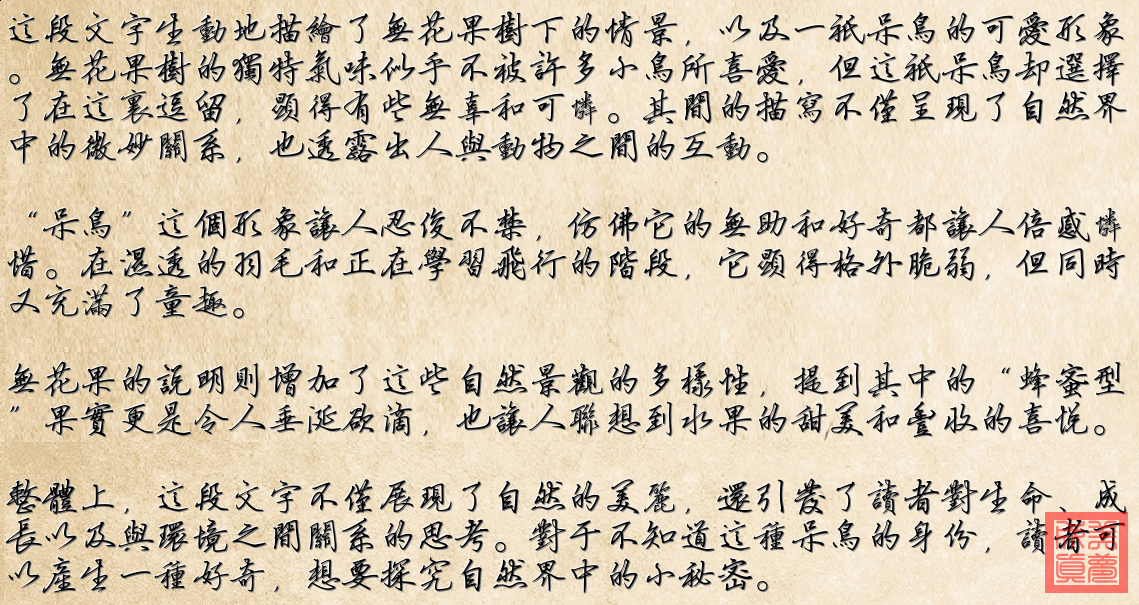 這段文字生動地描繪了無花果樹下的情景，以及一祇呆鳥的可愛形象
。無花果樹的獨特氣味似乎不被許多小鳥所喜愛，但這祇呆鳥却選擇
了在這裏逗留，顯得有些無辜和可憐。其間的描寫不僅呈現了自然界
中的微妙關系，也透露出人與動物之間的互動。
“呆鳥”這個形象讓人忍俊不禁，仿佛它的無助和好奇都讓人倍感憐
惜。在濕透的羽毛和正在學習飛行的階段，它顯得格外脆弱，但同時
又充滿了童趣。
無花果的説明則增加了這些自然景觀的多樣性，提到其中的“蜂蜜型
”果實更是令人垂涎欲滴，也讓人聯想到水果的甜美和豐收的喜悅。
整體上，這段文字不僅展現了自然的美麗，還引發了讀者對生命、成
長以及與環境之間關系的思考。對于不知道這種呆鳥的身份，讀者可
以產生一種好奇，想要探究自然界中的小秘密。